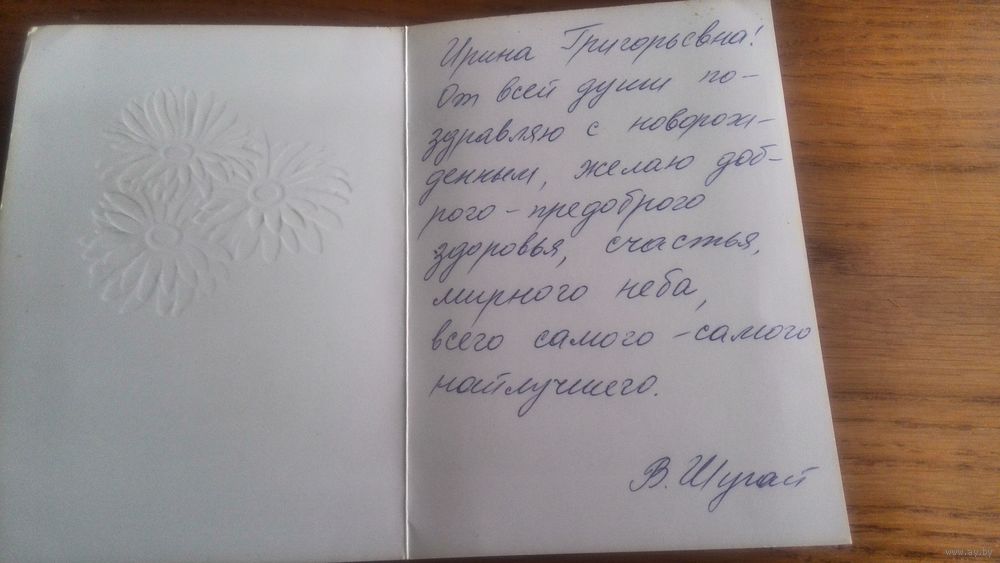 Ирина Григорьевна!
От всей души по-
здравляю с новорож-
денным, желаю доб-
рого-предоброго
здоровья, счастья,
мирного неба,
всего самого-самого
найлучшего.
В. Шугай
www.ay.by